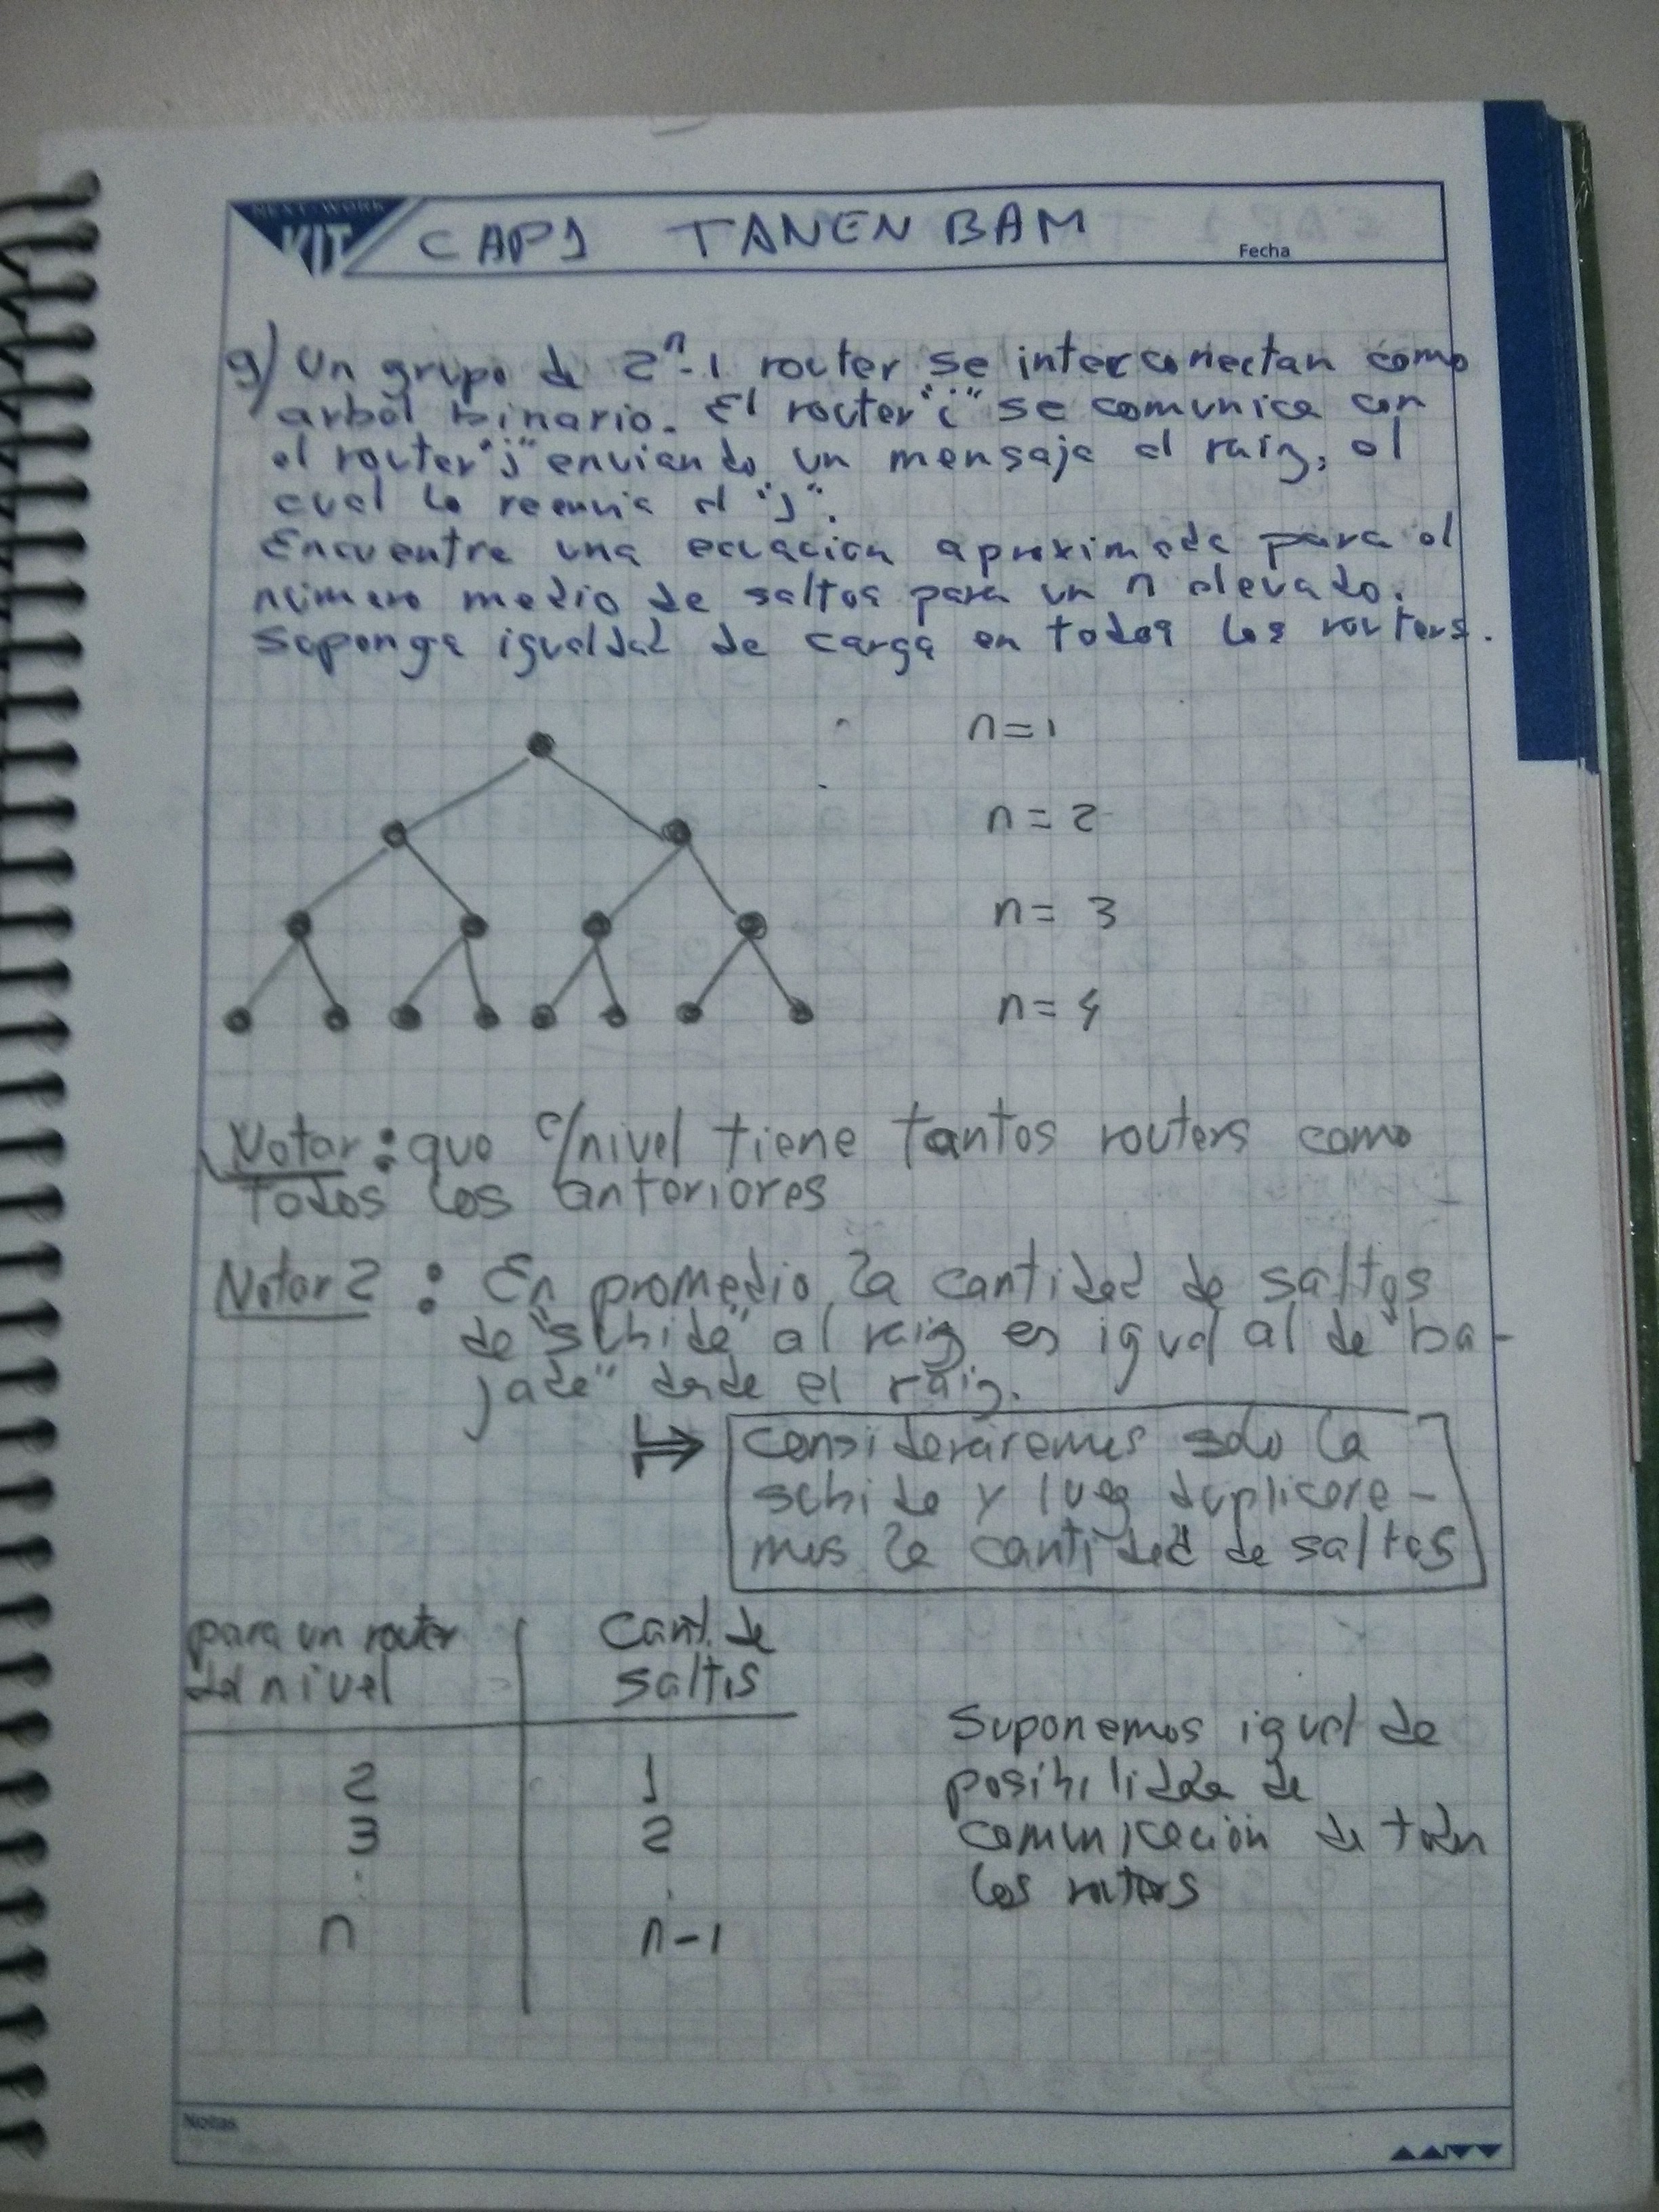 NEXT WORK
KIT
CAP1 TANENBAM
Fecha
9) Un grupo de 2^n-1 router se interconectan como
arbol binario. El router "i" se comunica con
el router "j" enviando un mensaje al raiz, el
cual lo reenvia al "j".
Encuentre una ecuacion aproximada para el
número medio de saltos para un n elevado.
Suponga igualdad de carga en todos los routers.
n=1
n=2
n=3
n=4
Notar: que c/nivel tiene tantos routers como
todos los anteriores
Notar2: En promedio, la cantidad de saltos
de "subida" al raiz es igual al de "ba-
jada" desde el raiz.
⇒ consideraremos solo la
subida y lueg duplicare-
mos la cantidad de saltos
para un router
del nivel
Cant. de
saltos
2 1
3 2
n n-1
Suponemos igual de
de
comunicación de todos
los routers
Notas